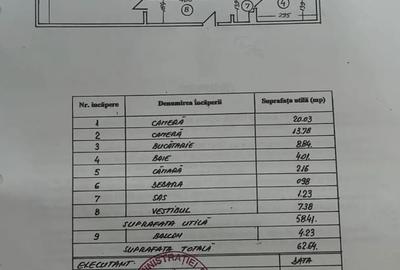 8
7
4
295
Nr. încăpere Denumirea încăperii Suprafața utilă (mp)
1 CAMERĂ 20.03
2 CAMERĂ 13.78
3 BUCĂTARIE 8.84
4 BAIE 4.01
5 CĂMARĂ 2.16
6 DEBARA 0.98
7 SAS 1.23
8 VESTIBUL 7.38
SUPRAFAȚA UTILĂ 58.41
9 BALCON 4.23
SUPRAFAȚA TOTALĂ 62.64
EXECUTANT DATA